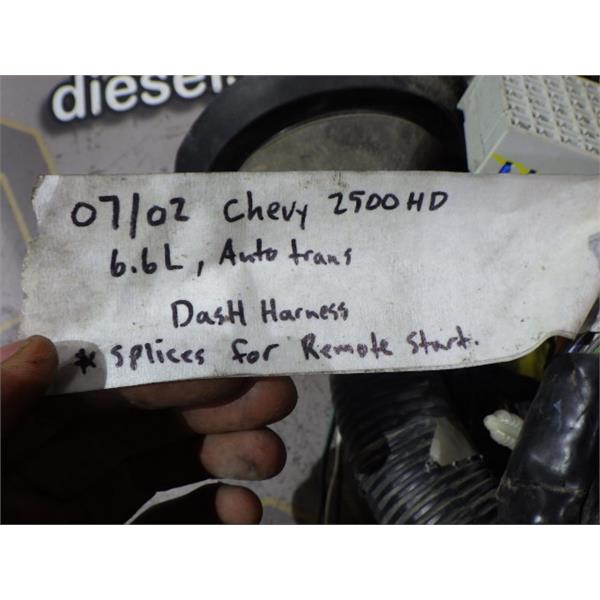 diesel
07/02 Chevy 2500HD
6.6L, Auto trans
DasH Harness
* splices for Remote start.